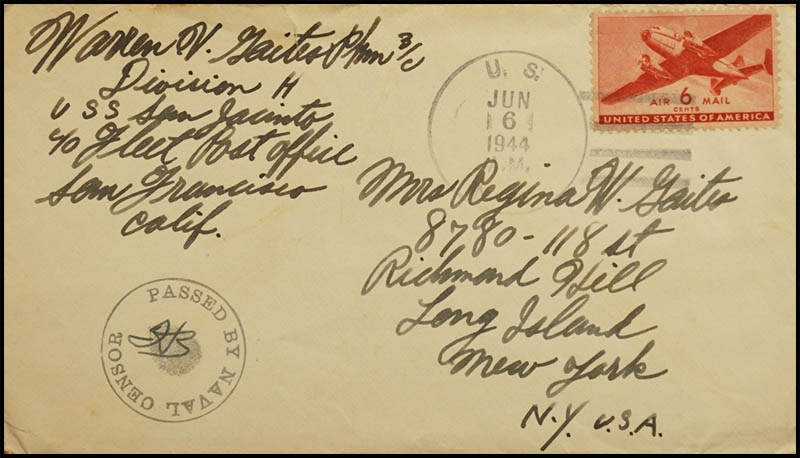 Warren V. Gaites Phm 3/c
Division H
U S S San Jacinto
c/o Fleet Post office
San Francisco
Calif.
U. S.
JUN
6
1944
.M.
AIR 6 MAIL
CENTS
UNITED STATES OF AMERICA
Mrs Regina W. Gaites
8780-118 st
Richmond Hill
Long Island
New York
N.Y. U.S.A.
PASSED BY NAVAL CENSOR